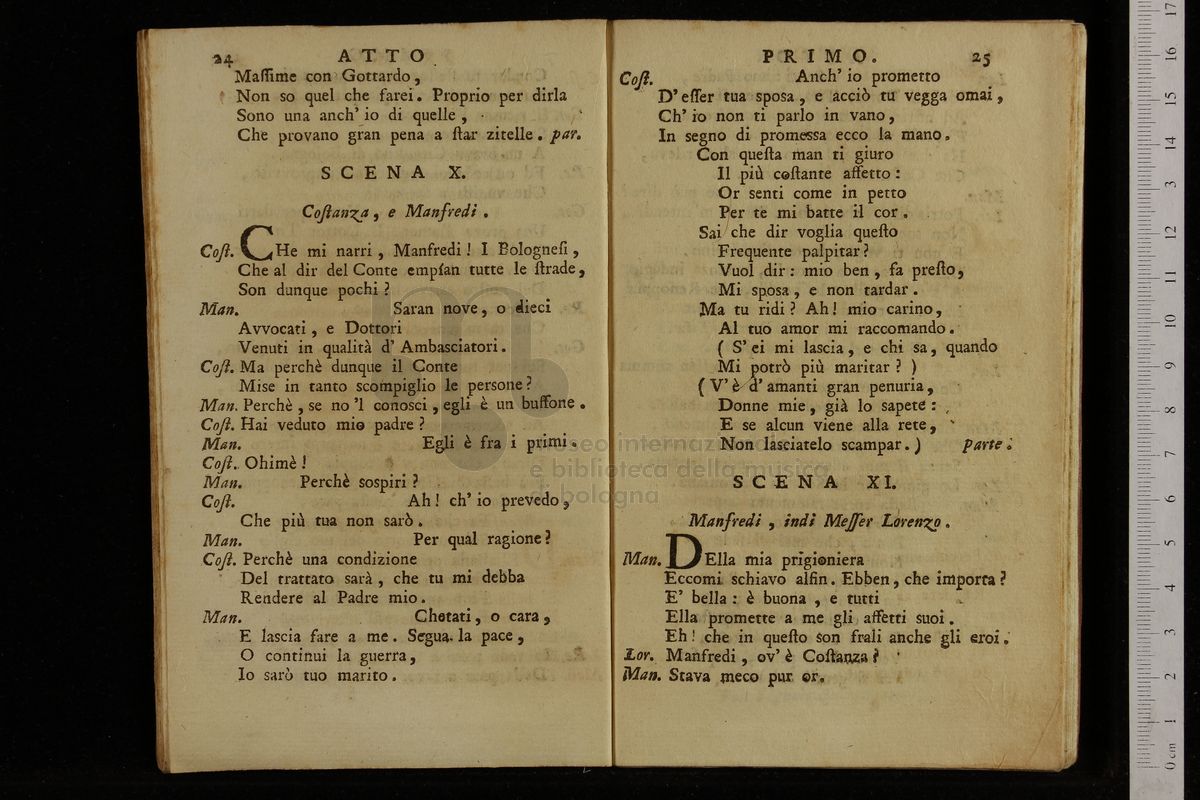 24 ATTO
Maſſime con Gottardo,
Non so quel che farei. Proprio per dirla
Sono una anch' io di quelle,
Che provano gran pena a ſtar zitelle. par.
SCENA X.
Coſtanza, e Manfredi.
Coſt. CHe mi narri, Manfredi! I Bologneſi,
Che al dir del Conte empían tutte le ſtrade,
Son dunque pochi?
Man. Saran nove, o dieci
Avvocati, e Dottori
Venuti in qualità d' Ambasciatori.
Coſt. Ma perchè dunque il Conte
Mise in tanto scompiglio le persone?
Man. Perchè, se no 'l conosci, egli è un buffone.
Coſt. Hai veduto mio padre?
Man. Egli è fra i primi.
Coſt. Ohimè!
Man. Perchè sospiri?
Coſt. Ah! ch' io prevedo,
Che più tua non sarò.
Man. Per qual ragione?
Coſt. Perchè una condizione
Del trattato sarà, che tu mi debba
Rendere al Padre mio.
Man. Chetati, o cara,
E lascia fare a me. Segua la pace,
O continui la guerra,
Io sarò tuo marito.
PRIMO. 25
Coſt. Anch' io prometto
D' eſſer tua sposa, e acciò tu vegga omai,
Ch' io non ti parlo in vano,
In segno di promessa ecco la mano.
Con queſta man ti giuro
Il più coſtante affetto:
Or senti come in petto
Per te mi batte il cor.
Sai che dir voglia queſto
Frequente palpitar?
Vuol dir: mio ben, fa preſto,
Mi sposa, e non tardar.
Ma tu ridi? Ah! mio carino,
Al tuo amor mi raccomando.
( S' ei mi lascia, e chi sa, quando
Mi potrò più maritar? )
( V' è d' amanti gran penuria,
Donne mie, già lo sapete:
E se alcun viene alla rete,
Non lasciatelo scampar. ) parte.
SCENA XI.
Manfredi, indi Meſſer Lorenzo.
Man. DElla mia prigioniera
Eccomi schiavo alfin. Ebben, che importa?
E' bella: è buona, e tutti
Ella promette a me gli affetti suoi.
Eh! che in queſto son frali anche gli eroi.
Lor. Manfredi, ov' è Coſtanza?
Man. Stava meco pur or.
museo internazionale
e biblioteca della musica
di bologna
0 cm 1 2 3 4 5 6 7 8 9 10 11 12 13 14 15 16 17